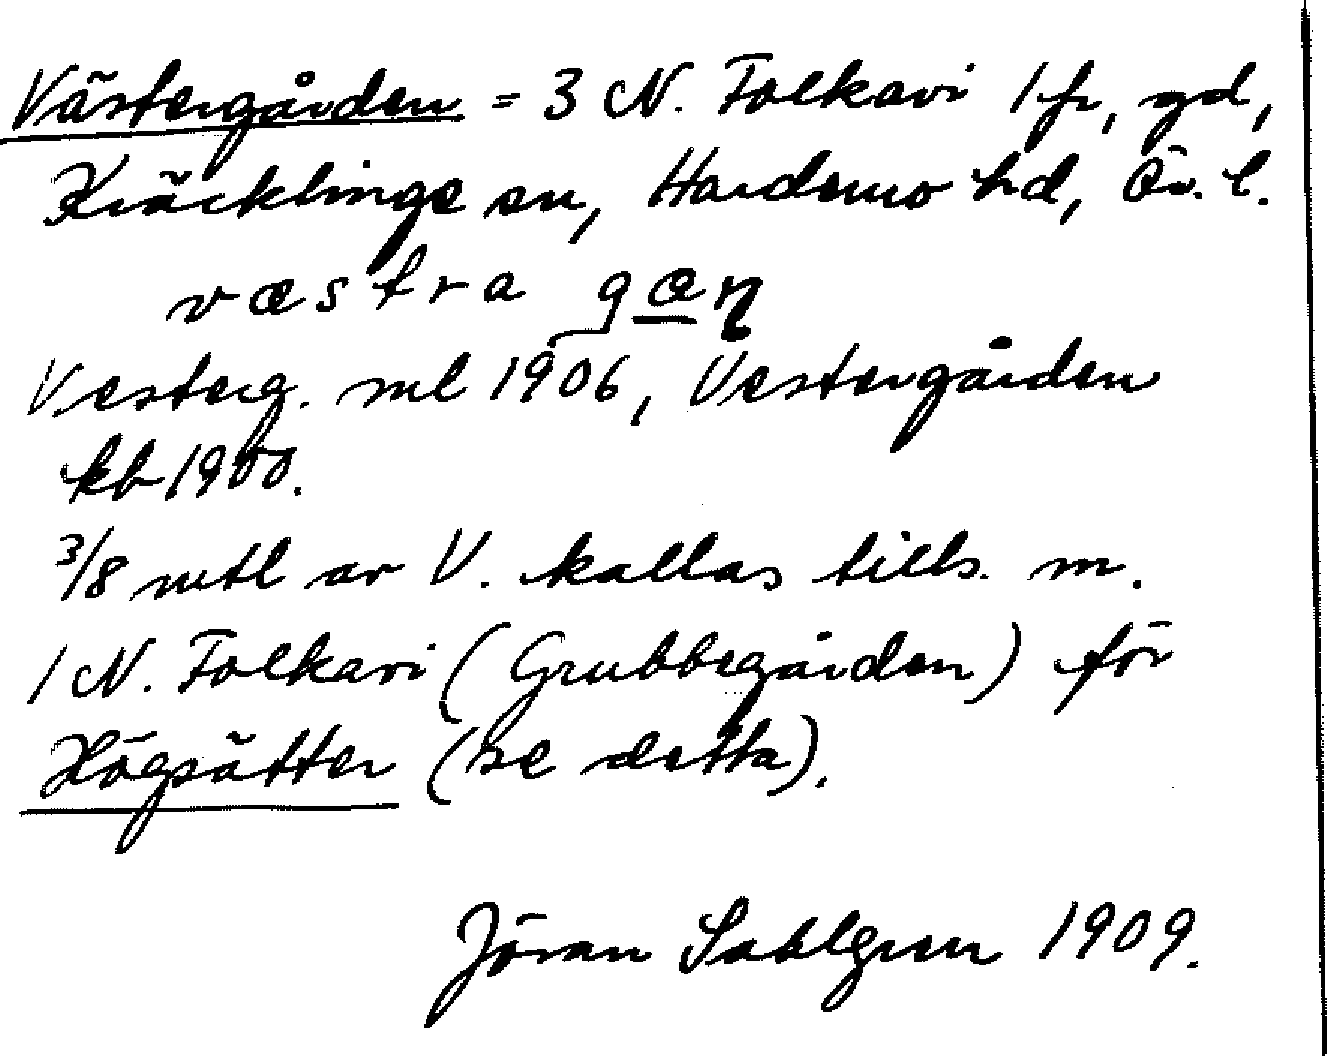 Västergården = 3 N. Folkavi 1 fr, gd,
Kräcklinge sn, Hardemo hd, Ör. l.
væstra gæɳ
Vesterg. ml 1906, Vestergården
kb 1900.
3/8 mtl av V. kallas tills. m.
1 N. Folkavi (Grubbegården) för
Högsätter (se detta).
Jöran Sahlgren 1909.